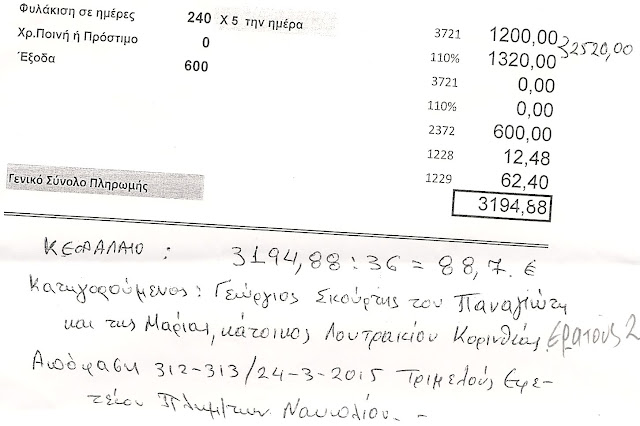 Φυλάκιση σε ημέρες 240 Χ 5 την ημέρα 3721 1200,00
Χρ.Ποινή ή Πρόστιμο 0 110% 1320,00 32520,00
Έξοδα 600 3721 0,00
110% 0,00
2372 600,00
1228 12,48
1229 62,40
Γενικό Σύνολο Πληρωμής 3194,88
ΚΕΦΑΛΑΙΟ : 3194,88 : 36 = 88,7. €
Κατηγορούμενος: Γεώργιος Σκούρτης του Παναγιώτη
και της Μαρίας, κάτοικος Λουτρακίου Κορινθίας, Ερατούς 2
Απόφαση 312-313/24-3-2015 Τριμελούς Εφε-
τείου Πλημ/των Ναυπλίου. -